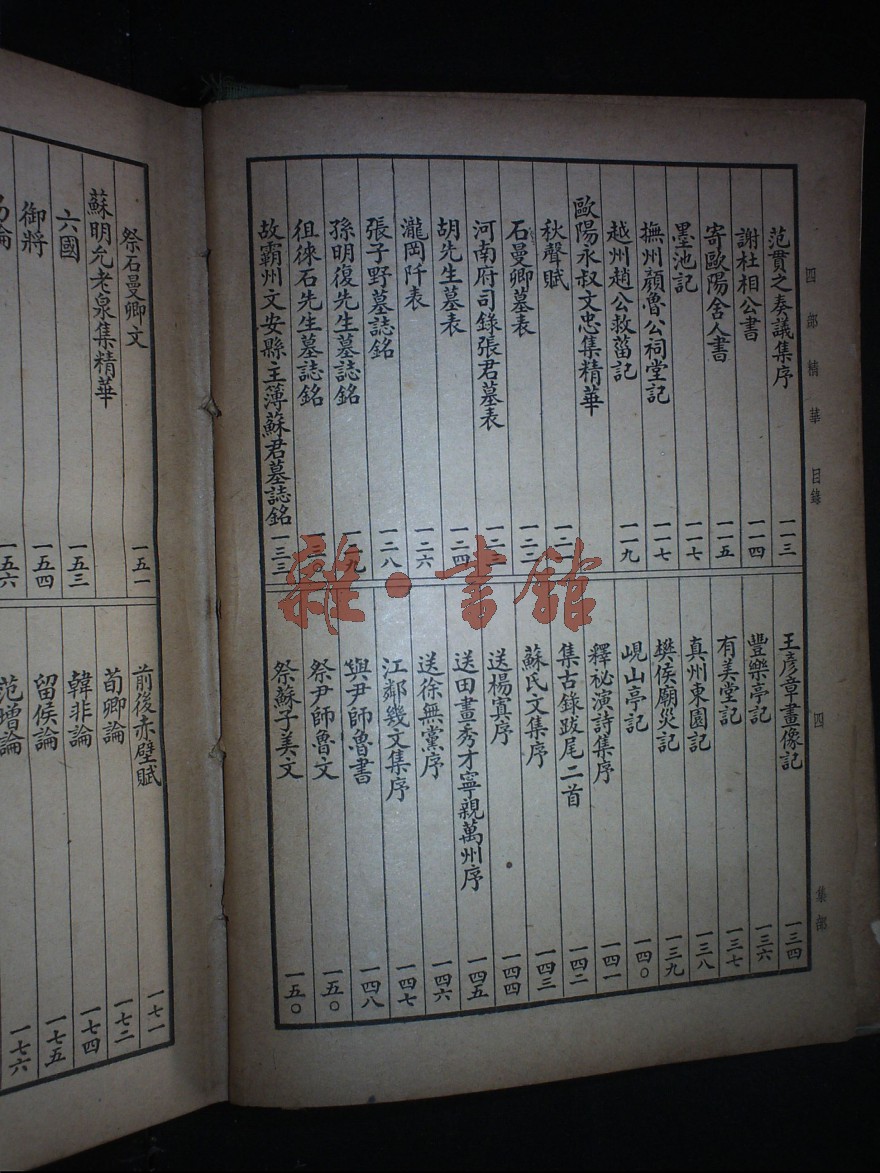 四部精華 目錄
四
集部
范貫之奏議集序 一一三
謝杜相公書 一一四
寄歐陽舍人書 一一五
墨池記 一一七
撫州顏魯公祠堂記 一一七
越州趙公救菑記 一一九
歐陽永叔文忠集精華
秋聲賦 一二一
石曼卿墓表 一二二
河南府司錄張君墓表
胡先生墓表 一二四
瀧岡阡表 一二六
張子野墓誌銘 一二八
孫明復先生墓誌銘 一二九
徂徠石先生墓誌銘
故霸州文安縣主簿蘇君墓誌銘 一三三
王彥章畫像記 一三四
豐樂亭記 一三六
有美堂記 一三七
真州東園記 一三八
樊侯廟災記 一三九
峴山亭記 一四〇
釋祕演詩集序 一四一
集古錄跋尾二首 一四二
蘇氏文集序 一四三
送楊寘序 一四四
送田畫秀才寧親萬州序 一四五
送徐無黨序 一四六
江鄰幾文集序 一四七
與尹師魯書 一四八
祭尹師魯文 一五〇
祭蘇子美文 一五〇
祭石曼卿文 一五一
蘇明允老泉集精華
六國 一五三
御將 一五四
論 一五六
前後赤壁賦 一七一
荀卿論 一七二
韓非論 一七四
留侯論 一七五
范增論 一七六
雜·書館